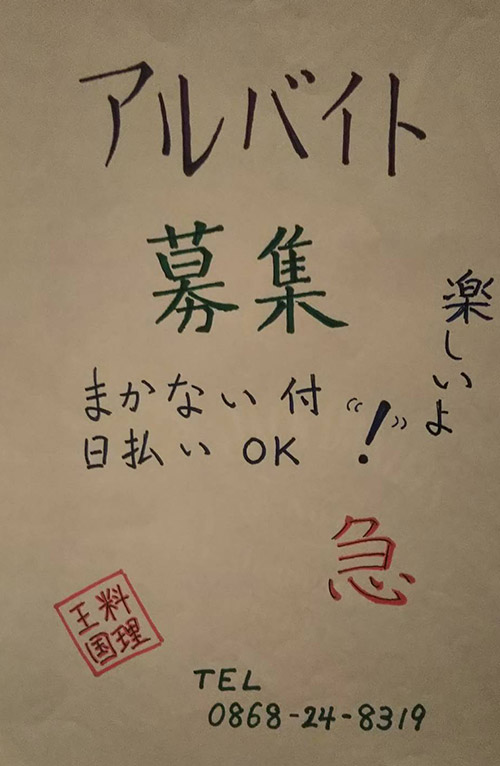 アルバイト
募集
楽しいよ
まかない付
日払い OK "!"
急
料理
王国
TEL
0868-24-8319